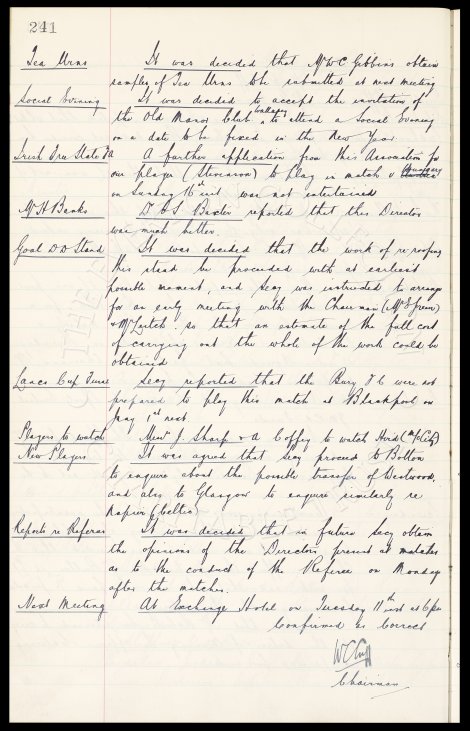 241
Tea Urns It was decided that Mr W C Gibbins obtain
samples of Tea Urns to be submitted at next meeting
Social Evening It was decided to accept the invitation of
the Old Manor Club, to attend a Social Evening
on a date to be fixed in the New Year.
Irish Free State FA A further application from this Association for
our player (Stevenson) to play in match v Hungary
on Sunday 16th inst was not entertained
Mr H Banks Dr C S Baxter reported that this Director
was much better.
Goal DD Stand It was decided that the work of re-roofing
this stand be proceeded with at earliest
possible moment, and Secy was instructed to arrange
for an early meeting with the Chairman (Mr E Green)
& Mr Leitch. so that an estimate of the full cost
of carrying out the whole of the work could be
obtained
Lancs Cup Secy reported that the Bury F C were not
prepared to play this match at Blackpool on
1st next
Players to watch Messrs J. Sharp & A Coffey to watch Herd (M/c City)
New Players It was agreed that Secy proceed to Bolton
to enquire about the possible transfer of Westwood,
and also to Glasgow to enquire similarly re
Napier (Celtic)
Reports re Referees It was decided that in future Secy obtain
the opinions of the Directors present at matches
as to the conduct of the Referee on Monday
after the matches.
Next Meeting At Exchange Hotel on Tuesday 11th inst at 6pm
Confirmed as Correct
W C Cuff
Chairman